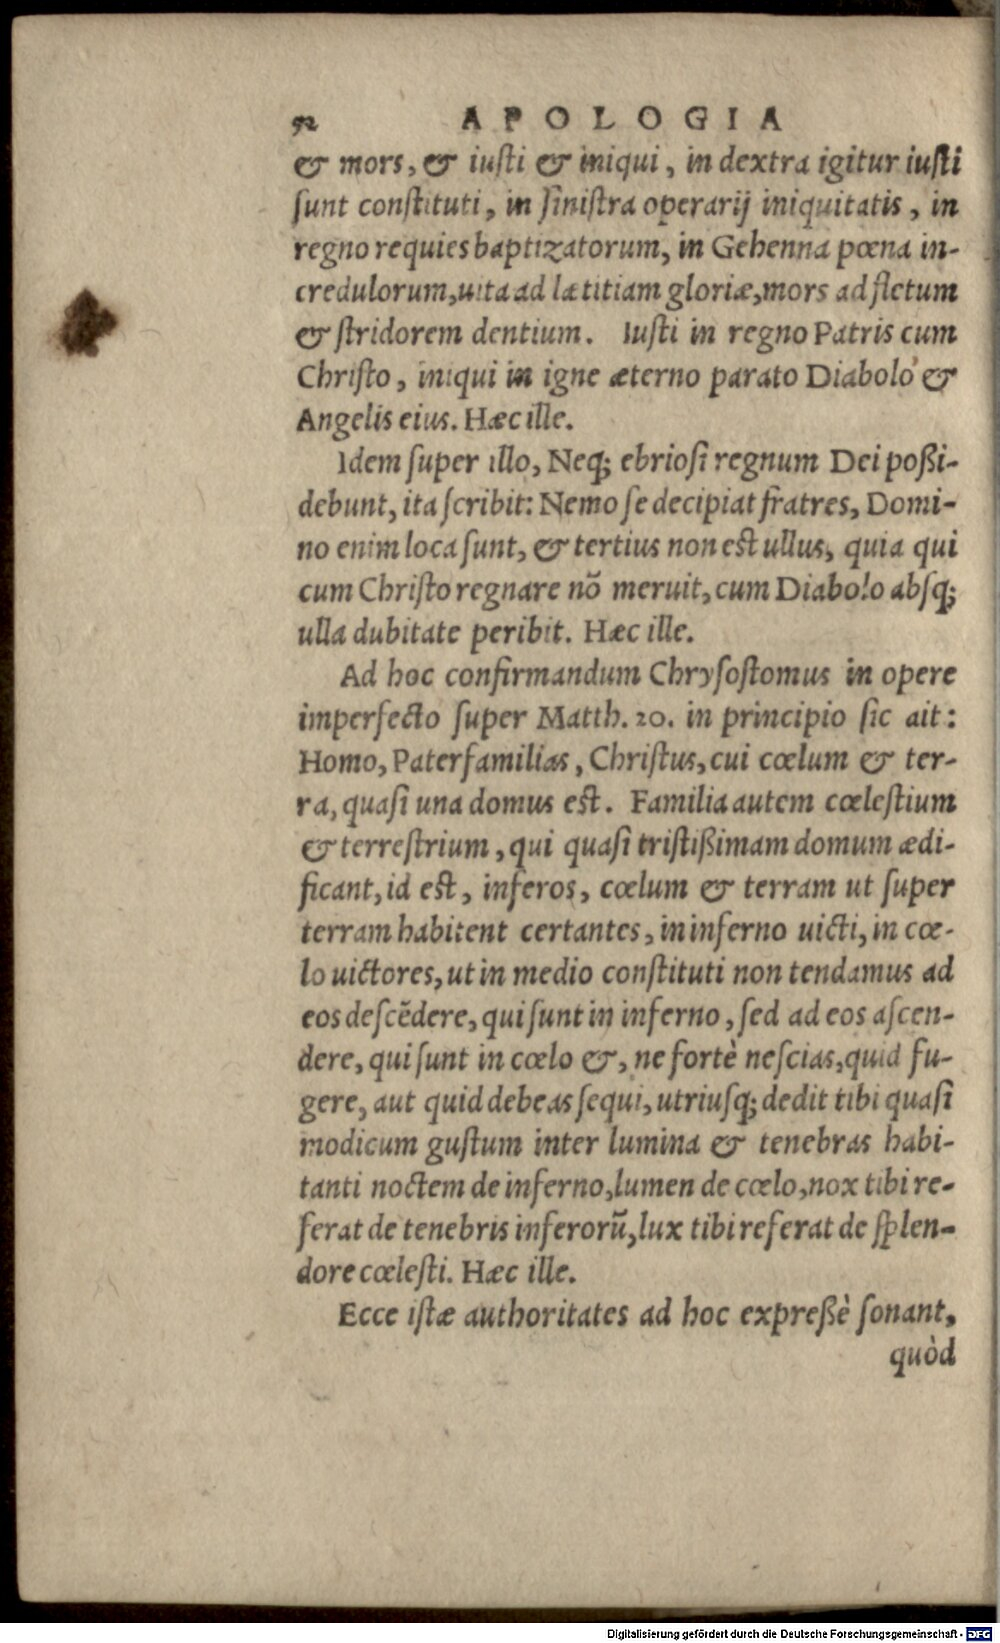 92 APOLOGIA
& mors, & iusti & iniqui, in dextra igitur iusti
sunt constituti, in sinistra operarij iniquitatis, in
regno requies baptizatorum, in Gehenna pœna in-
credulorum, uita ad lætitiam gloriæ, mors ad fletum
& stridorem dentium. Iusti in regno Patris cum
Christo, iniqui in igne æterno parato Diabolo &
Angelis eius. Hæc ille.
Idem super illo, Neq; ebriosi regnum Dei poßi-
debunt, ita scribit: Nemo se decipiat fratres, Domi-
no enim loca sunt, & tertius non est ullus, quia qui
cum Christo regnare nõ meruit, cum Diabolo absq;
ulla dubitate peribit. Hæc ille.
Ad hoc confirmandum Chrysostomus in opere
imperfecto super Matth. 20. in principio sic ait:
Homo, Paterfamilias, Christus, cui cœlum & ter-
ra, quasi una domus est. Familia autem cœlestium
& terrestrium, qui quasi tristißimam domum ædi-
ficant, id est, inferos, cœlum & terram ut super
terram habitent certantes, in inferno uicti, in cœ-
lo uictores, ut in medio constituti non tendamus ad
eos descẽdere, qui sunt in inferno, sed ad eos ascen-
dere, qui sunt in cœlo &, ne fortè nescias, quid fu-
gere, aut quid debeas sequi, utriusq; dedit tibi quasi
modicum gustum inter lumina & tenebras habi-
tanti noctem de inferno, lumen de cœlo, nox tibi re-
ferat de tenebris inferorũ, lux tibi referat de splen-
dore cœlesti. Hæc ille.
Ecce istæ authoritates ad hoc expreßè sonant,
quòd
Digitalisierung gefördert durch die Deutsche Forschungsgemeinschaft - DFG